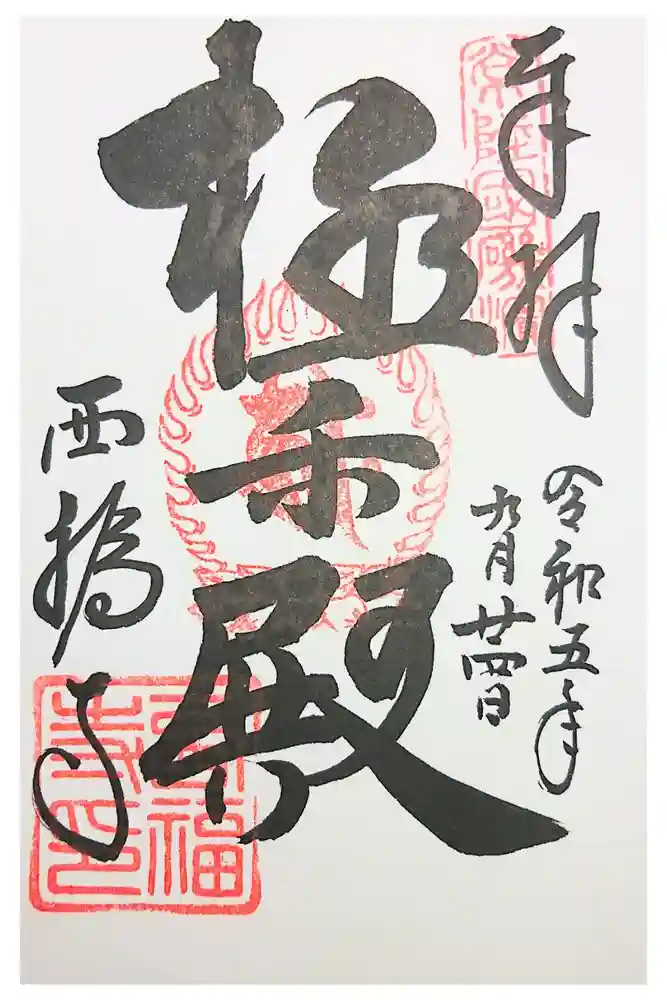 奉拝
令和五年
九月廿四日
極楽殿
西福寺
西福
寺印